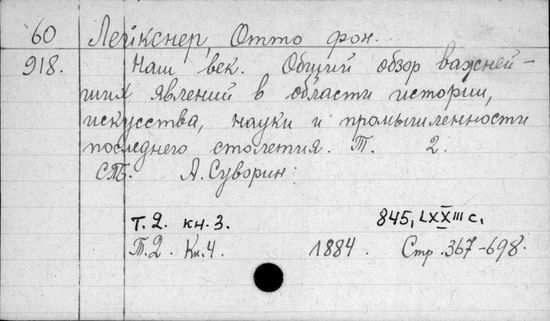 60 Лейкснер, Отто фон.
918. Наш век. Общий обзор важней-
ших явлений в области истории,
искусства, науки и промышленности
последнего столетия. Т. 2.
СПб. А. Суворин.
Т. 2. кн. 3. 845, LXXIII с.
Т. 2. Кн. 4. 1884. Стр. 367-698.